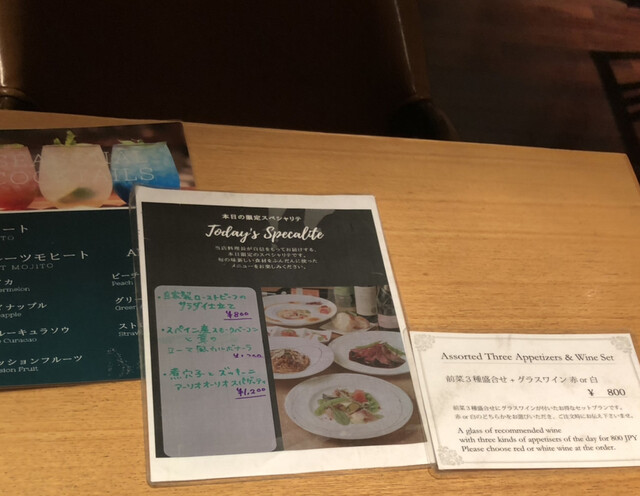 COCKTAILS
ート
ITO
ルーツモヒート
T MOJITO
イカ
termelon
イナップル
apple
ルーキュラソウ
Curacao
ッションフルーツ
sion Fruit
ピーチ
Peach
グリー
Green
スト
Straw
本日の限定スペシャリテ
Today's Specalite
当店料理長が自信をもってお届けする、
本日限定のスペシャリテです。
旬の味覚しい食材をふんだんに使った
メニューをお楽しみください。
・自家製ローストビーフの
サラダ仕立て
¥800
・スペイン産スモークベーコン
と
・煮穴子とズッキーニ
アーリオオーリオスパゲッティ
¥1,200
Assorted Three Appetizers & Wine Set
前菜3種盛合せ + グラスワイン 赤 or 白
¥ 800
前菜3種盛合せにグラスワインが付いたお得なセットプランです。
赤 or 白のどちらかをお選びいただき、ご注文時にお伝え下さいませ。
A glass of recommended wine
with three kinds of appetisers of the day for 800 JPY
Please choose red or white wine at the order.